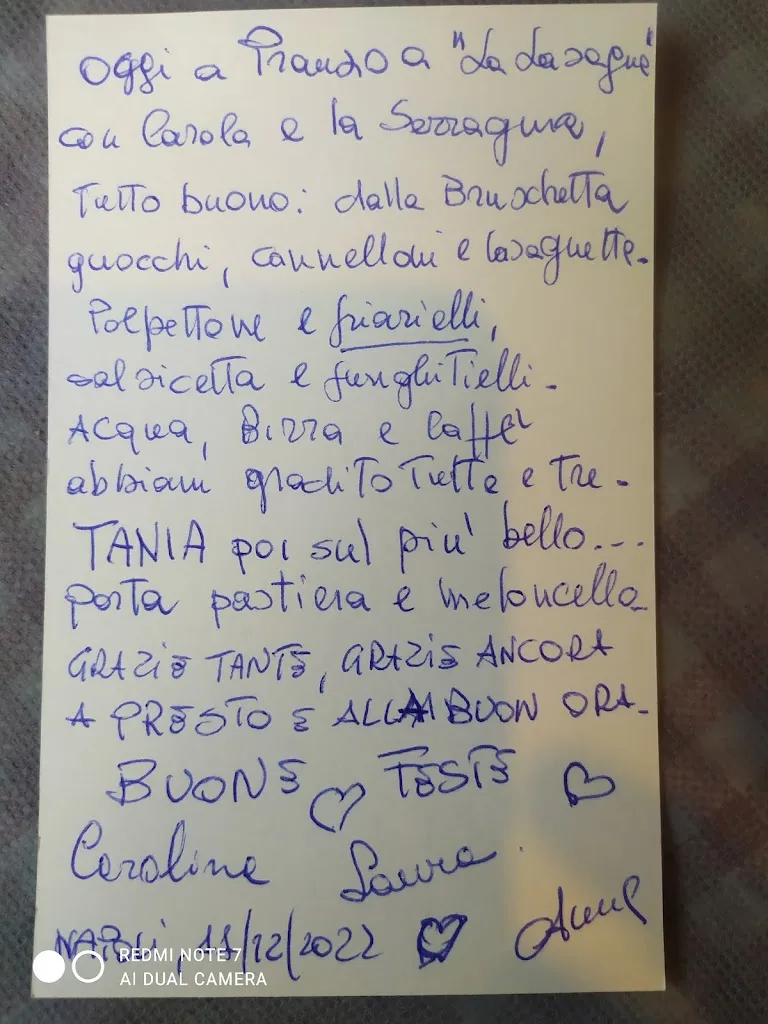 Oggi a Pranzo a "La Lasagna"
con Carola e la Serragina,
Tutto buono: dalla Bruschetta
gnocchi, cannelloni e lasagnette.
Polpettone e friarielli,
salsicetta e funghitielli.
Acqua, Birra e Caffè
abbiam gradito Tutte e Tre.
TANIA poi sul più bello...
porta pastiera e meloncello
GRAZIE TANTE, GRAZIE ANCORA
A PRESTO E ALLA BUON ORA.
BUONE FESTE
Carolina Laura
NAPOLI, 11/12/2022 Anna
REDMI NOTE 7
AI DUAL CAMERA